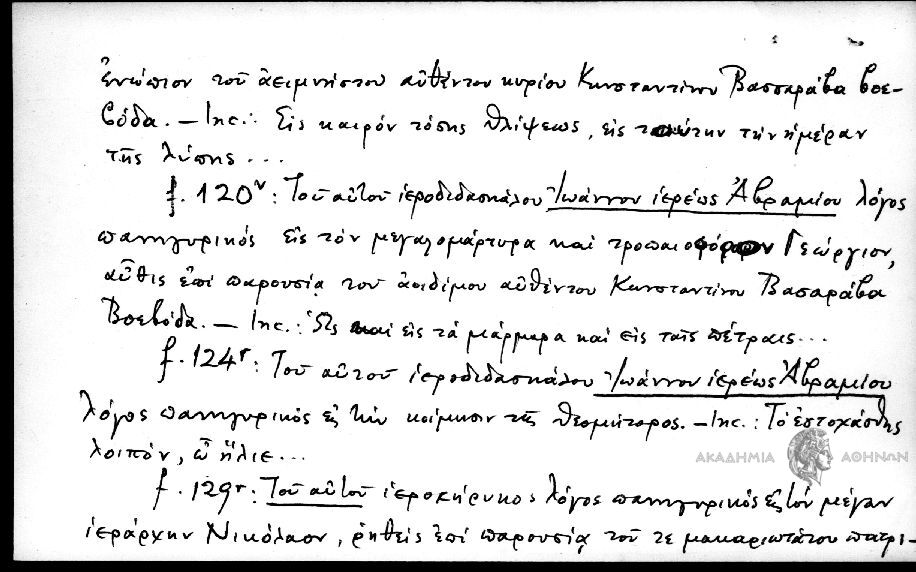 ἐνώπιον τοῦ ἀειμνήστου αὐθέντου κυρίου Κωνσταντίνου Βασσαράβα βοε-
βόδα. – Inc.: Εἰς καιρόν τόσης θλίψεως, εἰς ταύτην τήν ἡμέραν
τῆς λύπης ...
f. 120ᵛ: Τοῦ αὐτοῦ ἱεροδιδασκάλου Ἰωάννου ἱερέως Ἀβραμίου λόγος
πανηγυρικός εἰς τόν μεγαλομάρτυρα καί τροπαιοφόρον Γεώργιον,
αὖθις ἐπί παρουσίᾳ τοῦ ἀοιδίμου αὐθέντου Κωνσταντίνου Βασαράβα
Βοεβόδα. – Inc.: Ὡς καί εἰς τά μάρμαρα καί εἰς ταῖς πέτραις...
f. 124ʳ: Τοῦ αὐτοῦ ἱεροδιδασκάλου Ἰωάννου ἱερέως Ἀβραμίου
λόγος πανηγυρικός εἰς τήν κοίμησιν τῆς θεομήτορος. – Inc.: Τό ἐστοχάσθης
λοιπόν, ὦ ἥλιε...
ΑΚΑΔΗΜΙΑ ΑΘΗΝΩΝ
f. 129ʳ: Τοῦ αὐτοῦ ἱεροκήρυκος λόγος πανηγυρικός εἰς τόν μέγαν
ἱεράρχην Νικόλαον, ῥηθείς ἐπί παρουσίᾳ τοῦ τε μακαριωτάτου πατρι-